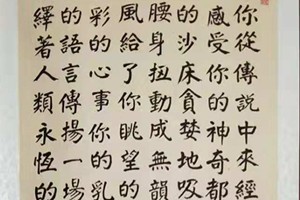 你從傳說中來經
感受你的神奇都
的沙床貪婪地吸
腰身扭動成無韻
風給了你眺望的
彩的心事你的乳
的語言傳揚一場
繹著人類永恆的